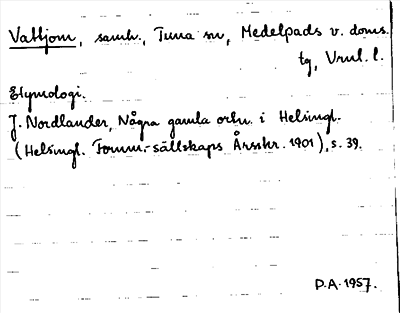 Vattjom, samh., Tuna sn, Medelpads v. doms.
tg, Vnul. l.
Etymologi.
J. Nordlander, Några gamla ortn. i Helsingl.
(Helsingl. Fornm.-sällskaps Årsskr. 1901), s. 39.
D.A. 1957.